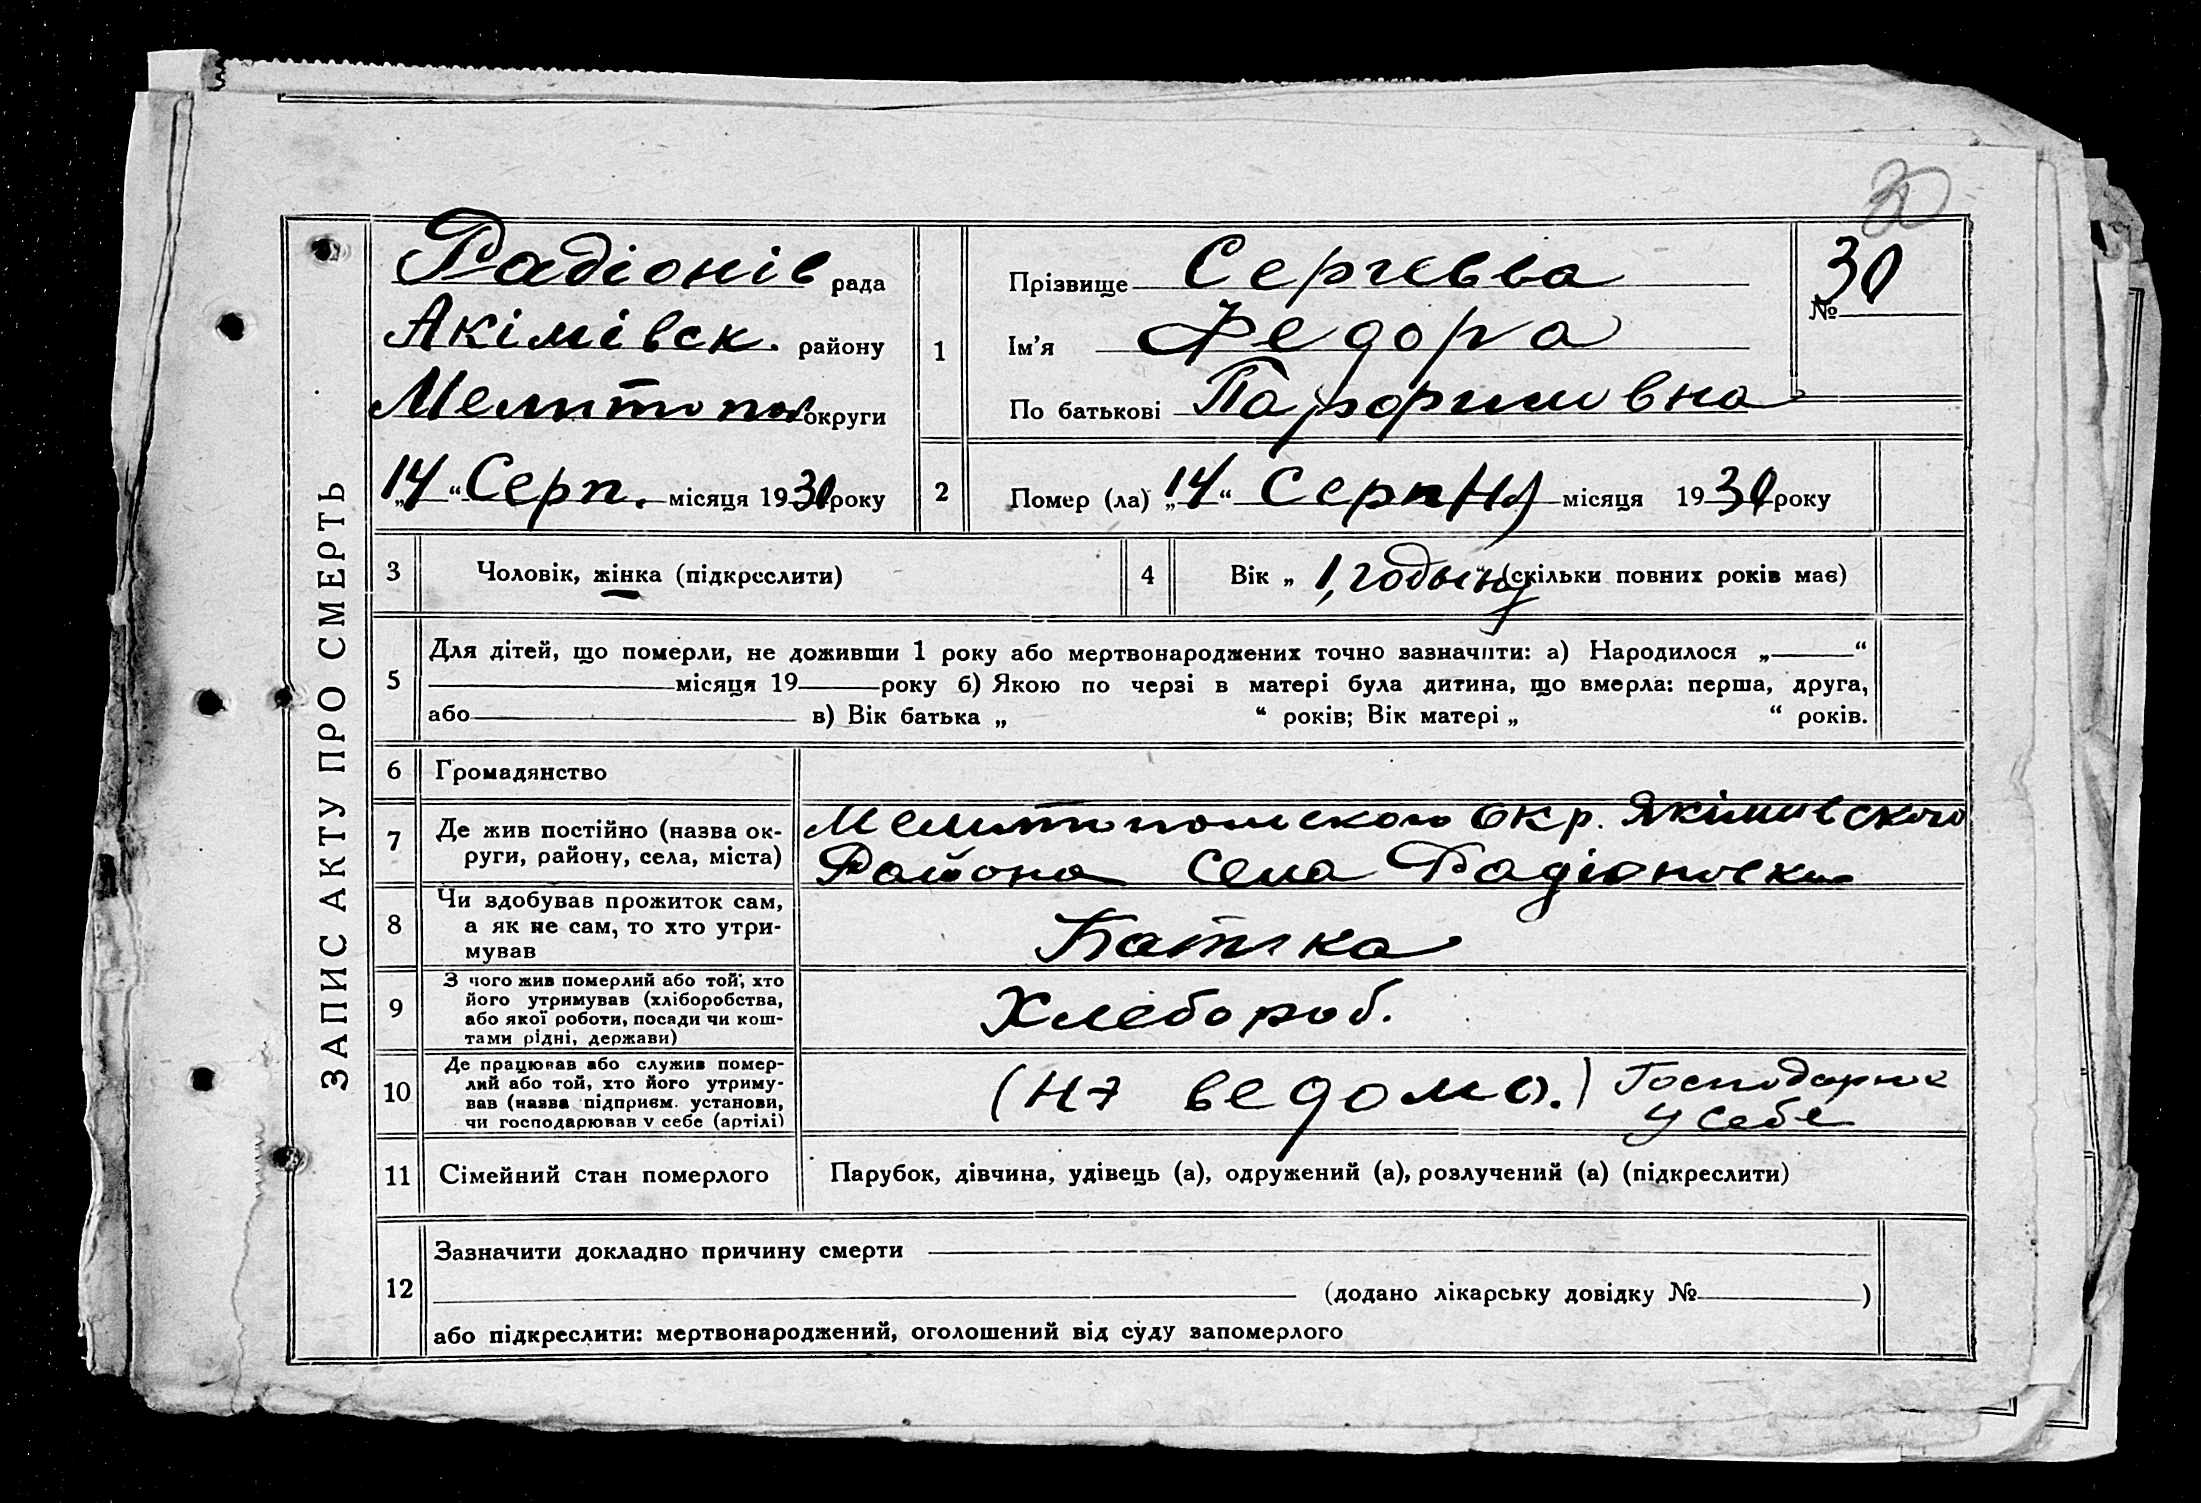 30
ЗАПИС АКТУ ПРО СМЕРТЬ
Радіонів рада
Акімівск. району
Мелитопол округи
„14“ Серп. місяця 1930 року
1
Прізвище Сергєєва
Ім'я Федора
По батькові
№ 30
2
Помер (ла) „14“ Серпня місяця 1930 року
3 Чоловік, жінка (підкреслити)
4 Вік „1, годыну“ (скільки повних років має)
5
Для дітей, що померли, не доживши 1 року або мертвонароджених точно зазначити: а) Народилося „ “
місяця 19 року б) Якою по черзі в матері була дитина, що вмерла: перша, друга,
або в) Вік батька „ “ років; Вік матері „ “ років.
6 Громадянство
7 Де жив постійно (назва ок-
руги, району, села, міста)
Мелитопольского Окр. Якимивского
Района Села Радіоновки
8
Чи здобував прожиток сам,
а як не сам, то хто утри-
мував
Батька
9
З чого жив померлий або той, хто
його утримував (хліборобства,
або якої роботи, посади чи кош-
тами рідні, держави)
Хлебороб.
10
Де працював або служив помер-
лий або той, хто його утриму-
вав (назва підприєм. установи,
чи господарював у себе (артілі)
(Не ведомо.) Господарює
у себе
11 Сімейний стан померлого
Парубок, дівчина, удівець (а), одружений (а), розлучений (а) (підкреслити)
12
Зазначити докладно причину смерти
(додано лікарську довідку № )
або підкреслити: мертвонароджений, оголошений від суду запомерлого